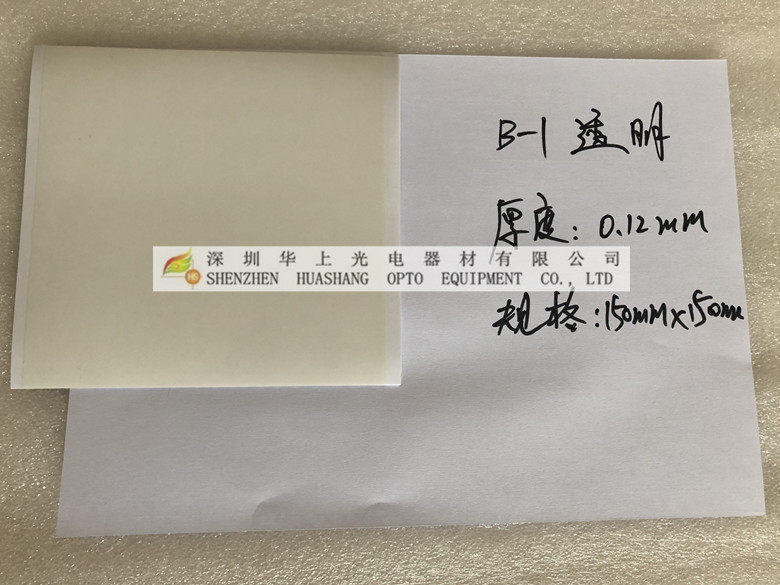 B-1 透明
厚度: 0.12mm
深圳华上光电器材有限公司
HS SHENZHEN HUASHANG OPTO EQUIPMENT CO., LTD
规格:150mm×150mm